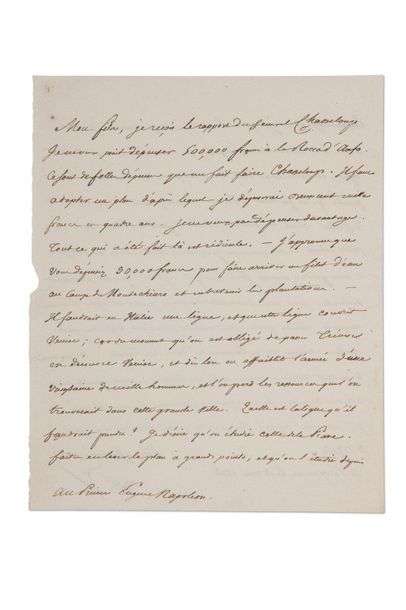 Mon fils, je reçois le rapport du Général Chasseloup.
Je ne veux point dépenser 500,000 francs à la Rocca d'Anfo.
Ce sont de folles dépenses que me fait faire Chasseloup. Il faut
adopter un plan d'après lequel je dépenserai mille
francs en quatre ans. je ne veux pas dépenser davantage.
Tout ce qui a été fait là est ridicule. — J'approuve que
vous dépensiez 30,000 francs pour faire arriver un filet d'eau
au camp de Montechiaro et entretenir les plantations. —
Il faudrait en Italie une ligne, et que cette ligne couvrit
Venise, car du moment qu'on est obligé de passer
on découvre Venise, et dès lors on affaiblit l'armée d'une
vingtaine de mille hommes, et l'on perd les ressources qu'on
trouverait dans cette grande ville. Quelle est la ligne qu'il
faudrait prendre? Je désire qu'on étudie celle de la Piave.
faites en lever le plan à grands points, et qu'on l'étudie depuis
Au Prince Eugène Napoléon.